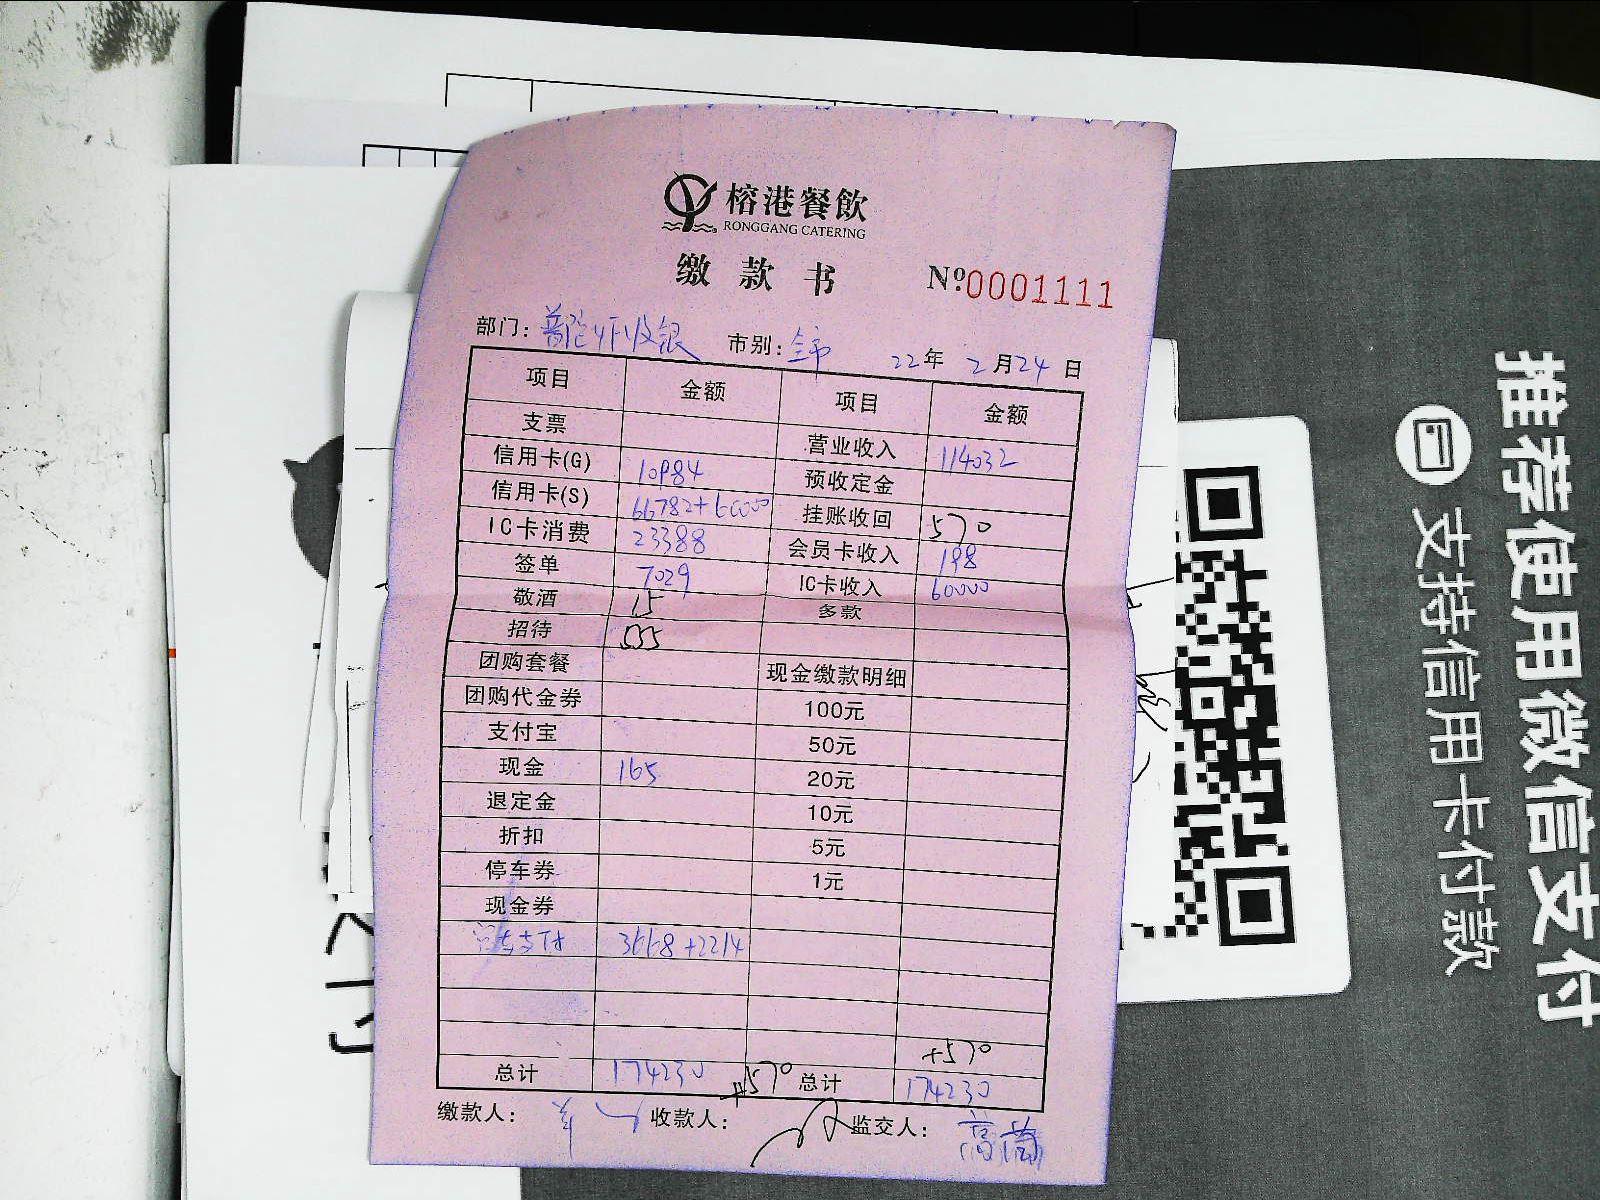 榕港餐飲
RONGGANG CATERING
缴款书 №0001111
部门: 普陀 收银 市别: 全市 22年 2月24日
项目 金额 项目 金额
支票 营业收入 114032
信用卡(G) 10984 预收定金
信用卡(S) 66782+60000 挂账收回 570
IC卡消费 23388 会员卡收入 198
签单 7029 IC卡收入 60000
敬酒 15 多款
招待 555
团购套餐 现金缴款明细
团购代金券 100元
支付宝 50元
现金 165 20元
退定金 10元
折扣 5元
停车券 1元
现金券
3668+2214
+570
总计 174230 +570 总计 174230
缴款人: 收款人: 监交人:
推荐使用微信支付
支持信用卡付款